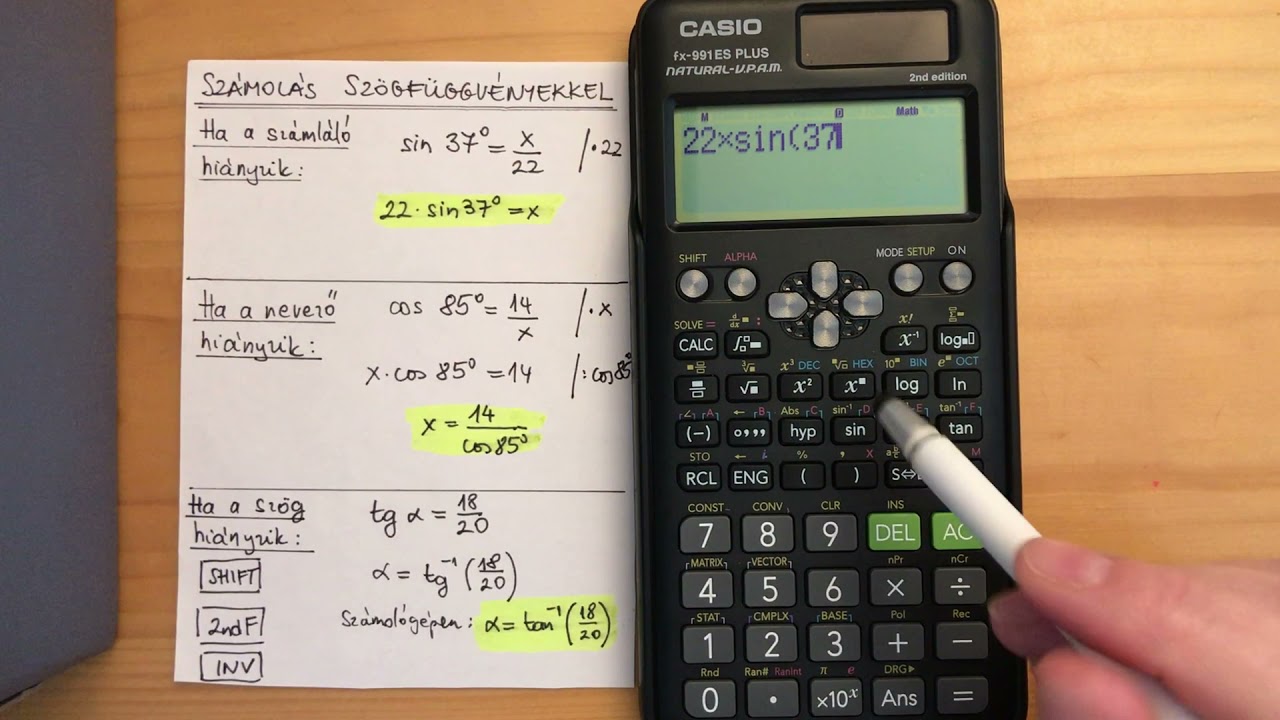 SZÁMOLÁS SZÖGFÜGGVÉNYEKKEL
Ha a számláló
hiányzik:
sin 37° = x/22 /·22
22·sin37° = x
Ha a nevező
hiányzik:
cos 85° = 14/x /·x
x·cos 85° = 14 /:cos85°
x = 14/cos85°
Ha a szög
hiányzik:
tg α = 18/20
SHIFT
α = tg⁻¹(18/20)
2ndF
Számológépen: α = tan⁻¹(18/20)
INV
CASIO
fx-991ES PLUS
NATURAL-V.P.A.M.
2nd edition
M D Math
22×sin(37
SHIFT ALPHA MODE SETUP ON
SOLVE = d/dx : x!
CALC ∫ x⁻¹ log
x³ DEC HEX 10 BIN e OCT
√ x² x log ln
∠ A ← B Abs C sin⁻¹ D E tan⁻¹ F
(−) °,,, hyp sin tan
STO ← i % , X M
RCL ENG ( ) S⇔
CONST CONV CLR INS
7 8 9 DEL AC
MATRIX VECTOR nPr nCr
4 5 6 × ÷
STAT CMPLX BASE Pol Rec
1 2 3 + −
Rnd Ran# RanInt π e DRG▶
0 · ×10ˣ Ans =